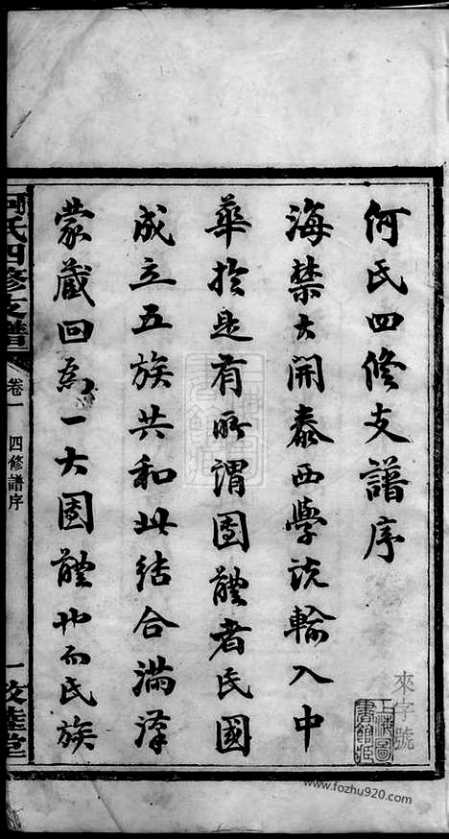 何氏四修支譜序
海禁大開泰西學說輸入中
華於是有所謂團體者民國
成立五族共和此結合滿漢
蒙藏回為一大團體也而民族
何氏四修支譜
卷一
四修譜序
一
敦睦堂
來字號
上海圖書館藏
www.fozhu920.com